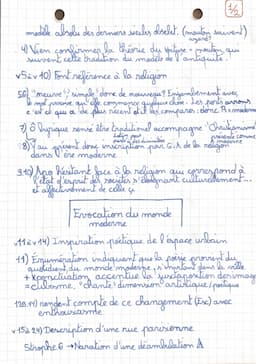 1/2
modèle absolu des derniers siècles
4) Vient confirmer la théorie du
suivent cette tradition du modèle de l'antiquité.
v5 à v10) Font référence à la religion
5,6) "neuve", simple donc de nouveau? Enjambement avec
qu'elle commence quelque chose. Les ports avions
c'est ce qui a de plus récent et il les comparer donc R = moderne
7) Ô lyrique sensé être traditionnel accompagne "Christianisme"
8) V au présent donc inscription par G.A de la religion
dans l'ère moderne
9,10) hésitant face à la religion qui correspond à
l'état d'esprit des sociétés s'éloignant culturellement...
et affectivement de celle ci
Evocation du monde
moderne
v11 à v14) Inspiration poétique de l'espace urbain
11) Enumération indiquant que la poésie provient du
quotidien du monde moderne, s'inscrivant dans la ville
+ ponctuation, accentue la juxtaposition des images
= cubisme. "chante" dimension artistique/poétique
12&14) rendent compte de ce changement (Ere) avec
enthousiasme
v15 à 24) Description d'une rue parisienne
Strophe 6 → Narration d'une déambulation A